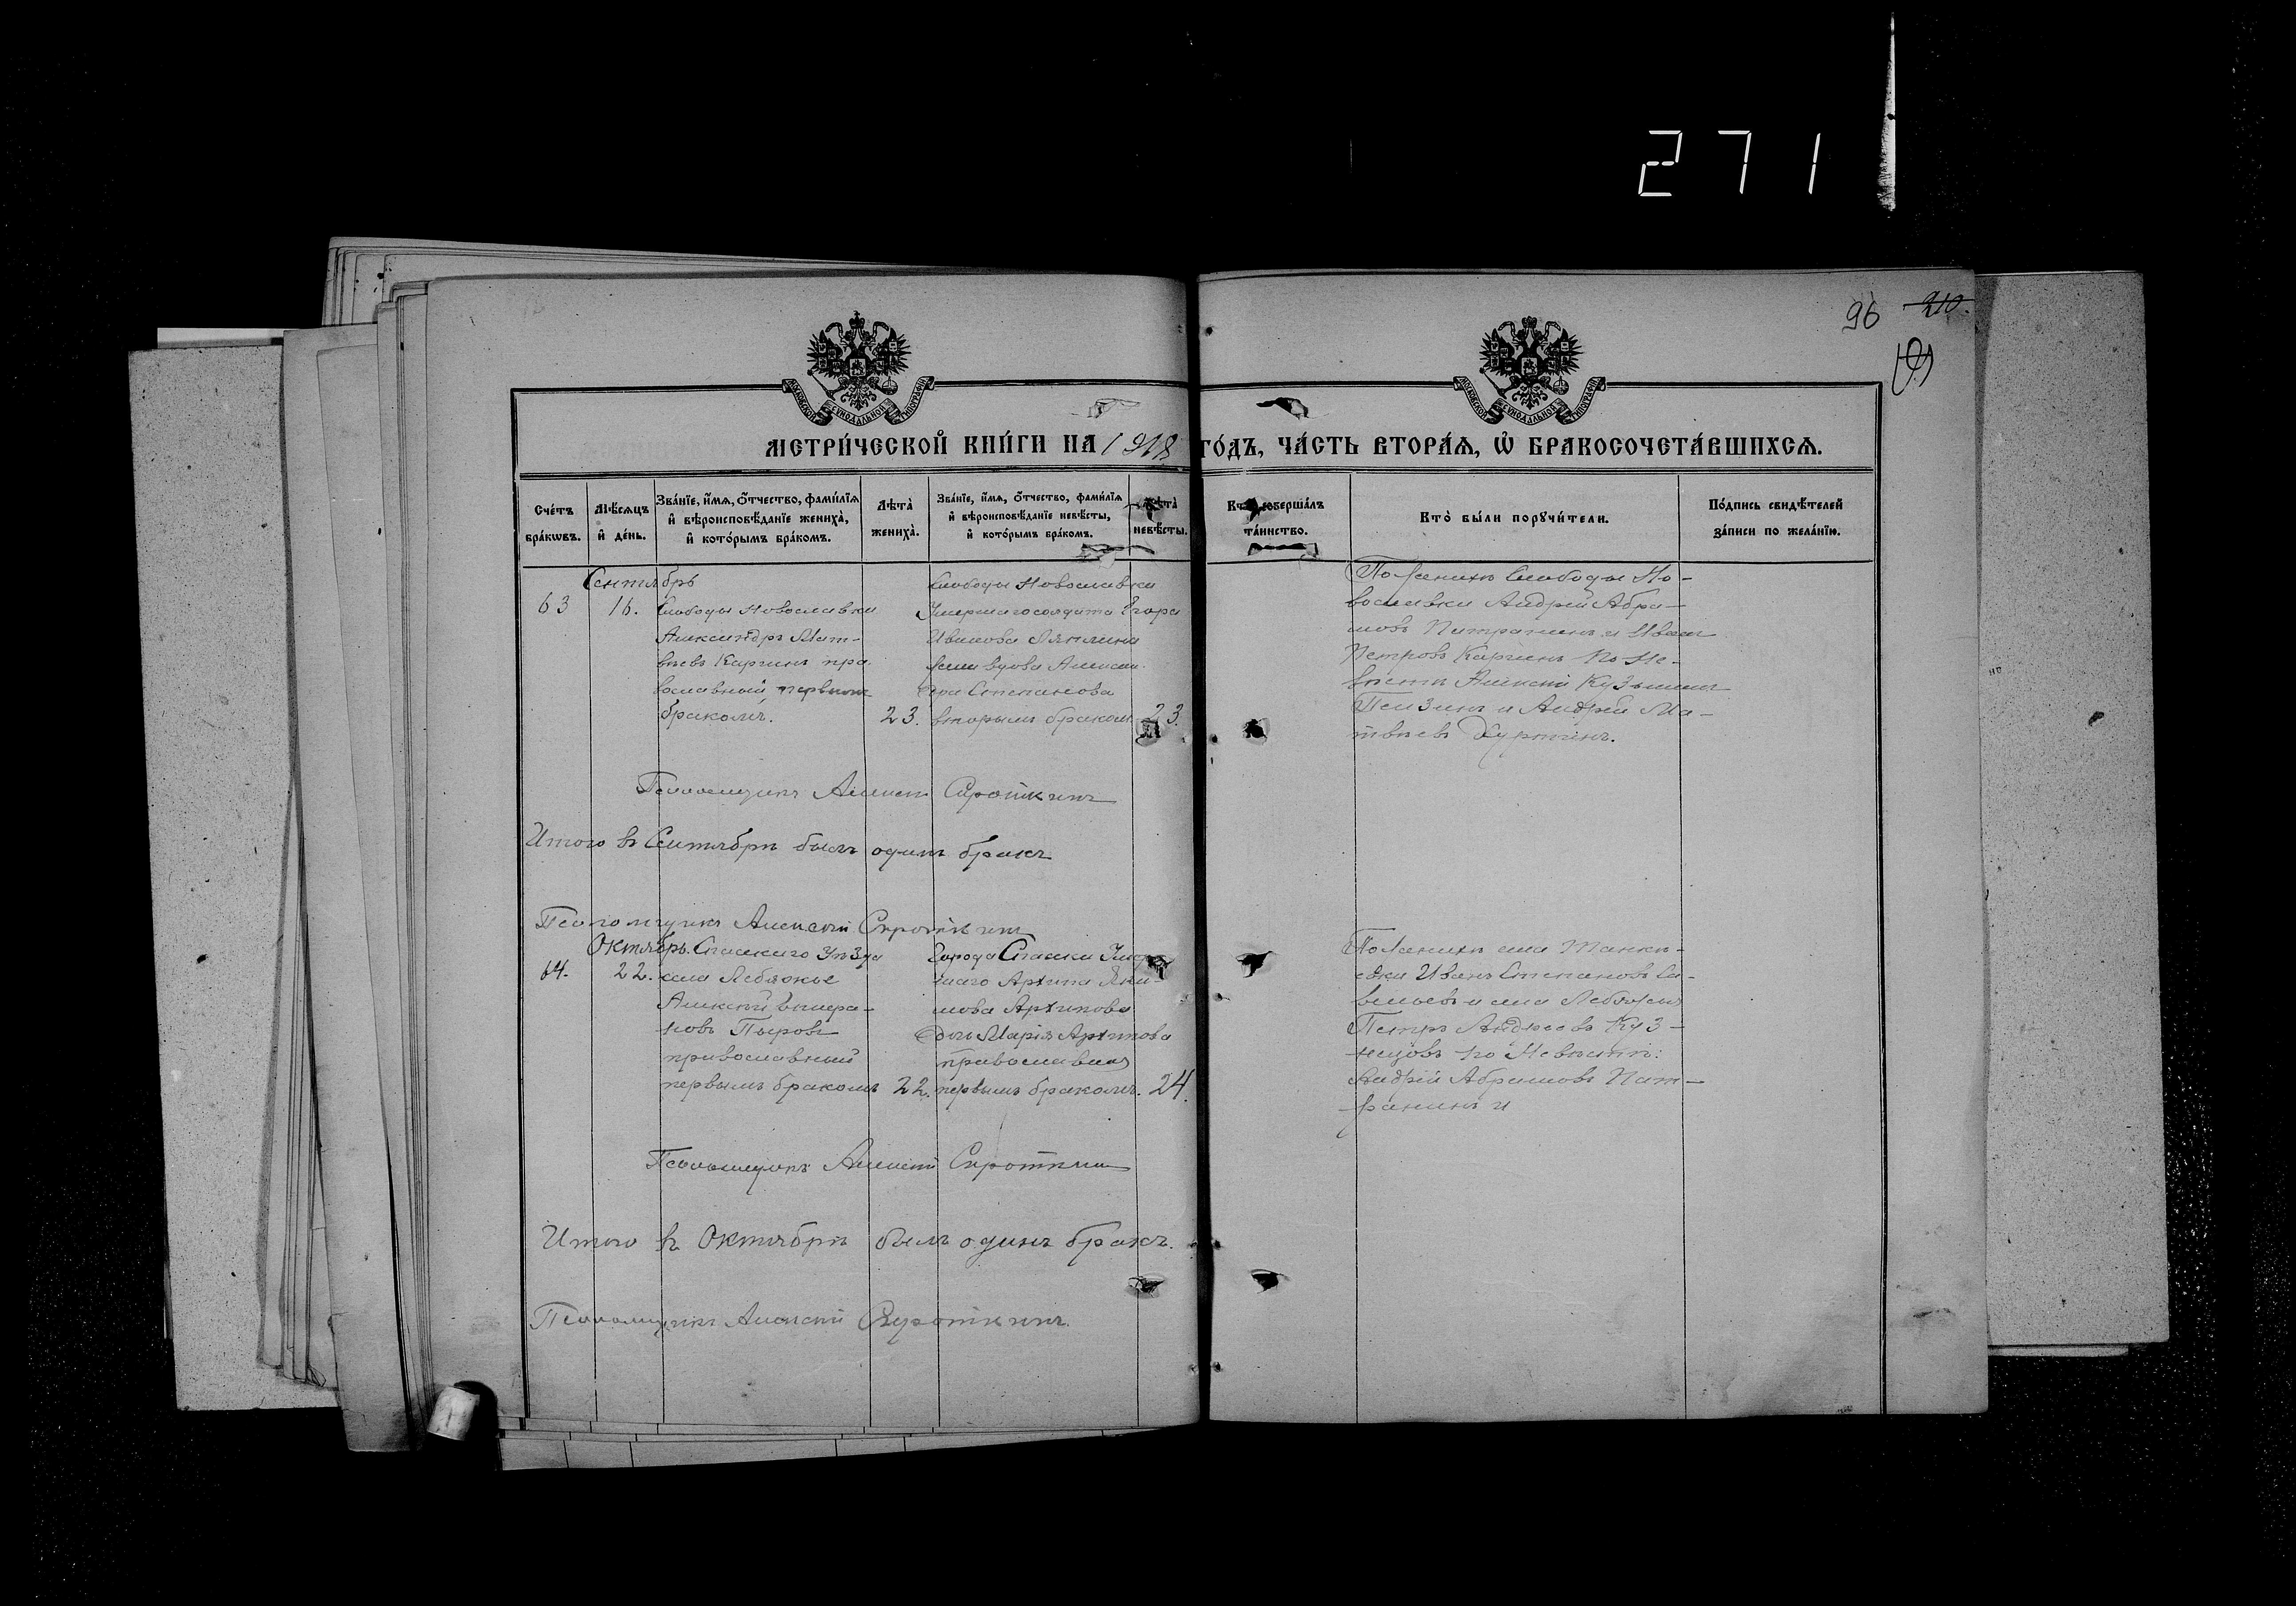 271
96 210.
МОСКОВСКОЙ СѴНОДАЛЬНОЙ ТИПОГРАФІИ
МОСКОВСКОЙ СѴНОДАЛЬНОЙ ТИПОГРАФІИ
МЕТРИ́ЧЕСКОЙ КНИ́ГИ НА 1918 ГО́ДЪ, ЧА́СТЬ ВТОРА́Ѧ, Ѡ҆ БРАКОСОЧЕТА́ВШИХСѦ.
Сче́тъ бра́кѡвъ.
Мѣ́сѧцъ и҆ де́нь.
Зва́нїе, и҆́мѧ, ѻ҆́тчество, фами́лїѧ и҆ вѣроисповѣ́данїе жениха̀, и҆ кото́рымъ бра́комъ.
Лѣта̀ жениха̀.
Зва́нїе, и҆́мѧ, ѻ҆́тчество, фами́лїѧ и҆ вѣроисповѣ́данїе невѣ́сты, и҆ кото́рымъ бра́комъ.
Лѣта̀ невѣ́сты.
Кто̀ соверша́лъ та́инство.
Кто̀ бы́ли порꙋчи́тели.
По́дпись свидѣ́телей за́писи по жела́нїю.
Сентябрь
63 16.
Слободы Новославки
Александръ Мат-
вѣевъ Каргинъ пра
вославный первымъ
бракомъ. 23.
Слободы Новославки
Умершаго солдата Егора
Иванова
жена вдова Алексан
дра Степанова
вторымъ браком. 23.
По женихѣ Слободы Но-
вославки Андрей Абра-
мовъ Патранинъ и Иванъ
Петровъ Каргинъ по Не-
вѣстѣ Алексѣй Кузьминъ
и Андрей Ма-
твѣевъ
Псаломщикъ Алексѣй Сироткинъ
Итого въ Сентябрѣ былъ одинъ бракъ
Псаломщикъ Алексѣй Сироткинъ
Октябрь.
64. 22.
Спасскаго уѣзда
села Лебяжье
Алексѣй
Пыровъ
православный
первымъ бракомъ 22.
Города Спасска Умер
шаго Архипа Яки-
мова Архипова
дочь Марія Архипова
православная
первымъ бракомъ. 24.
По женихѣ села Танкѣ-
евки Иванъ Степановъ Са-
вельевъ и села Лебяжья
Петръ Андреевъ Куз-
нецовъ по Невѣстѣ:
Андрей Абрамовъ Пат-
ранинъ и
Псаломщикъ Алексѣй Сироткинъ
Итого въ Октябрѣ былъ одинъ бракъ.
Псаломщикъ Алексѣй Сироткинъ.